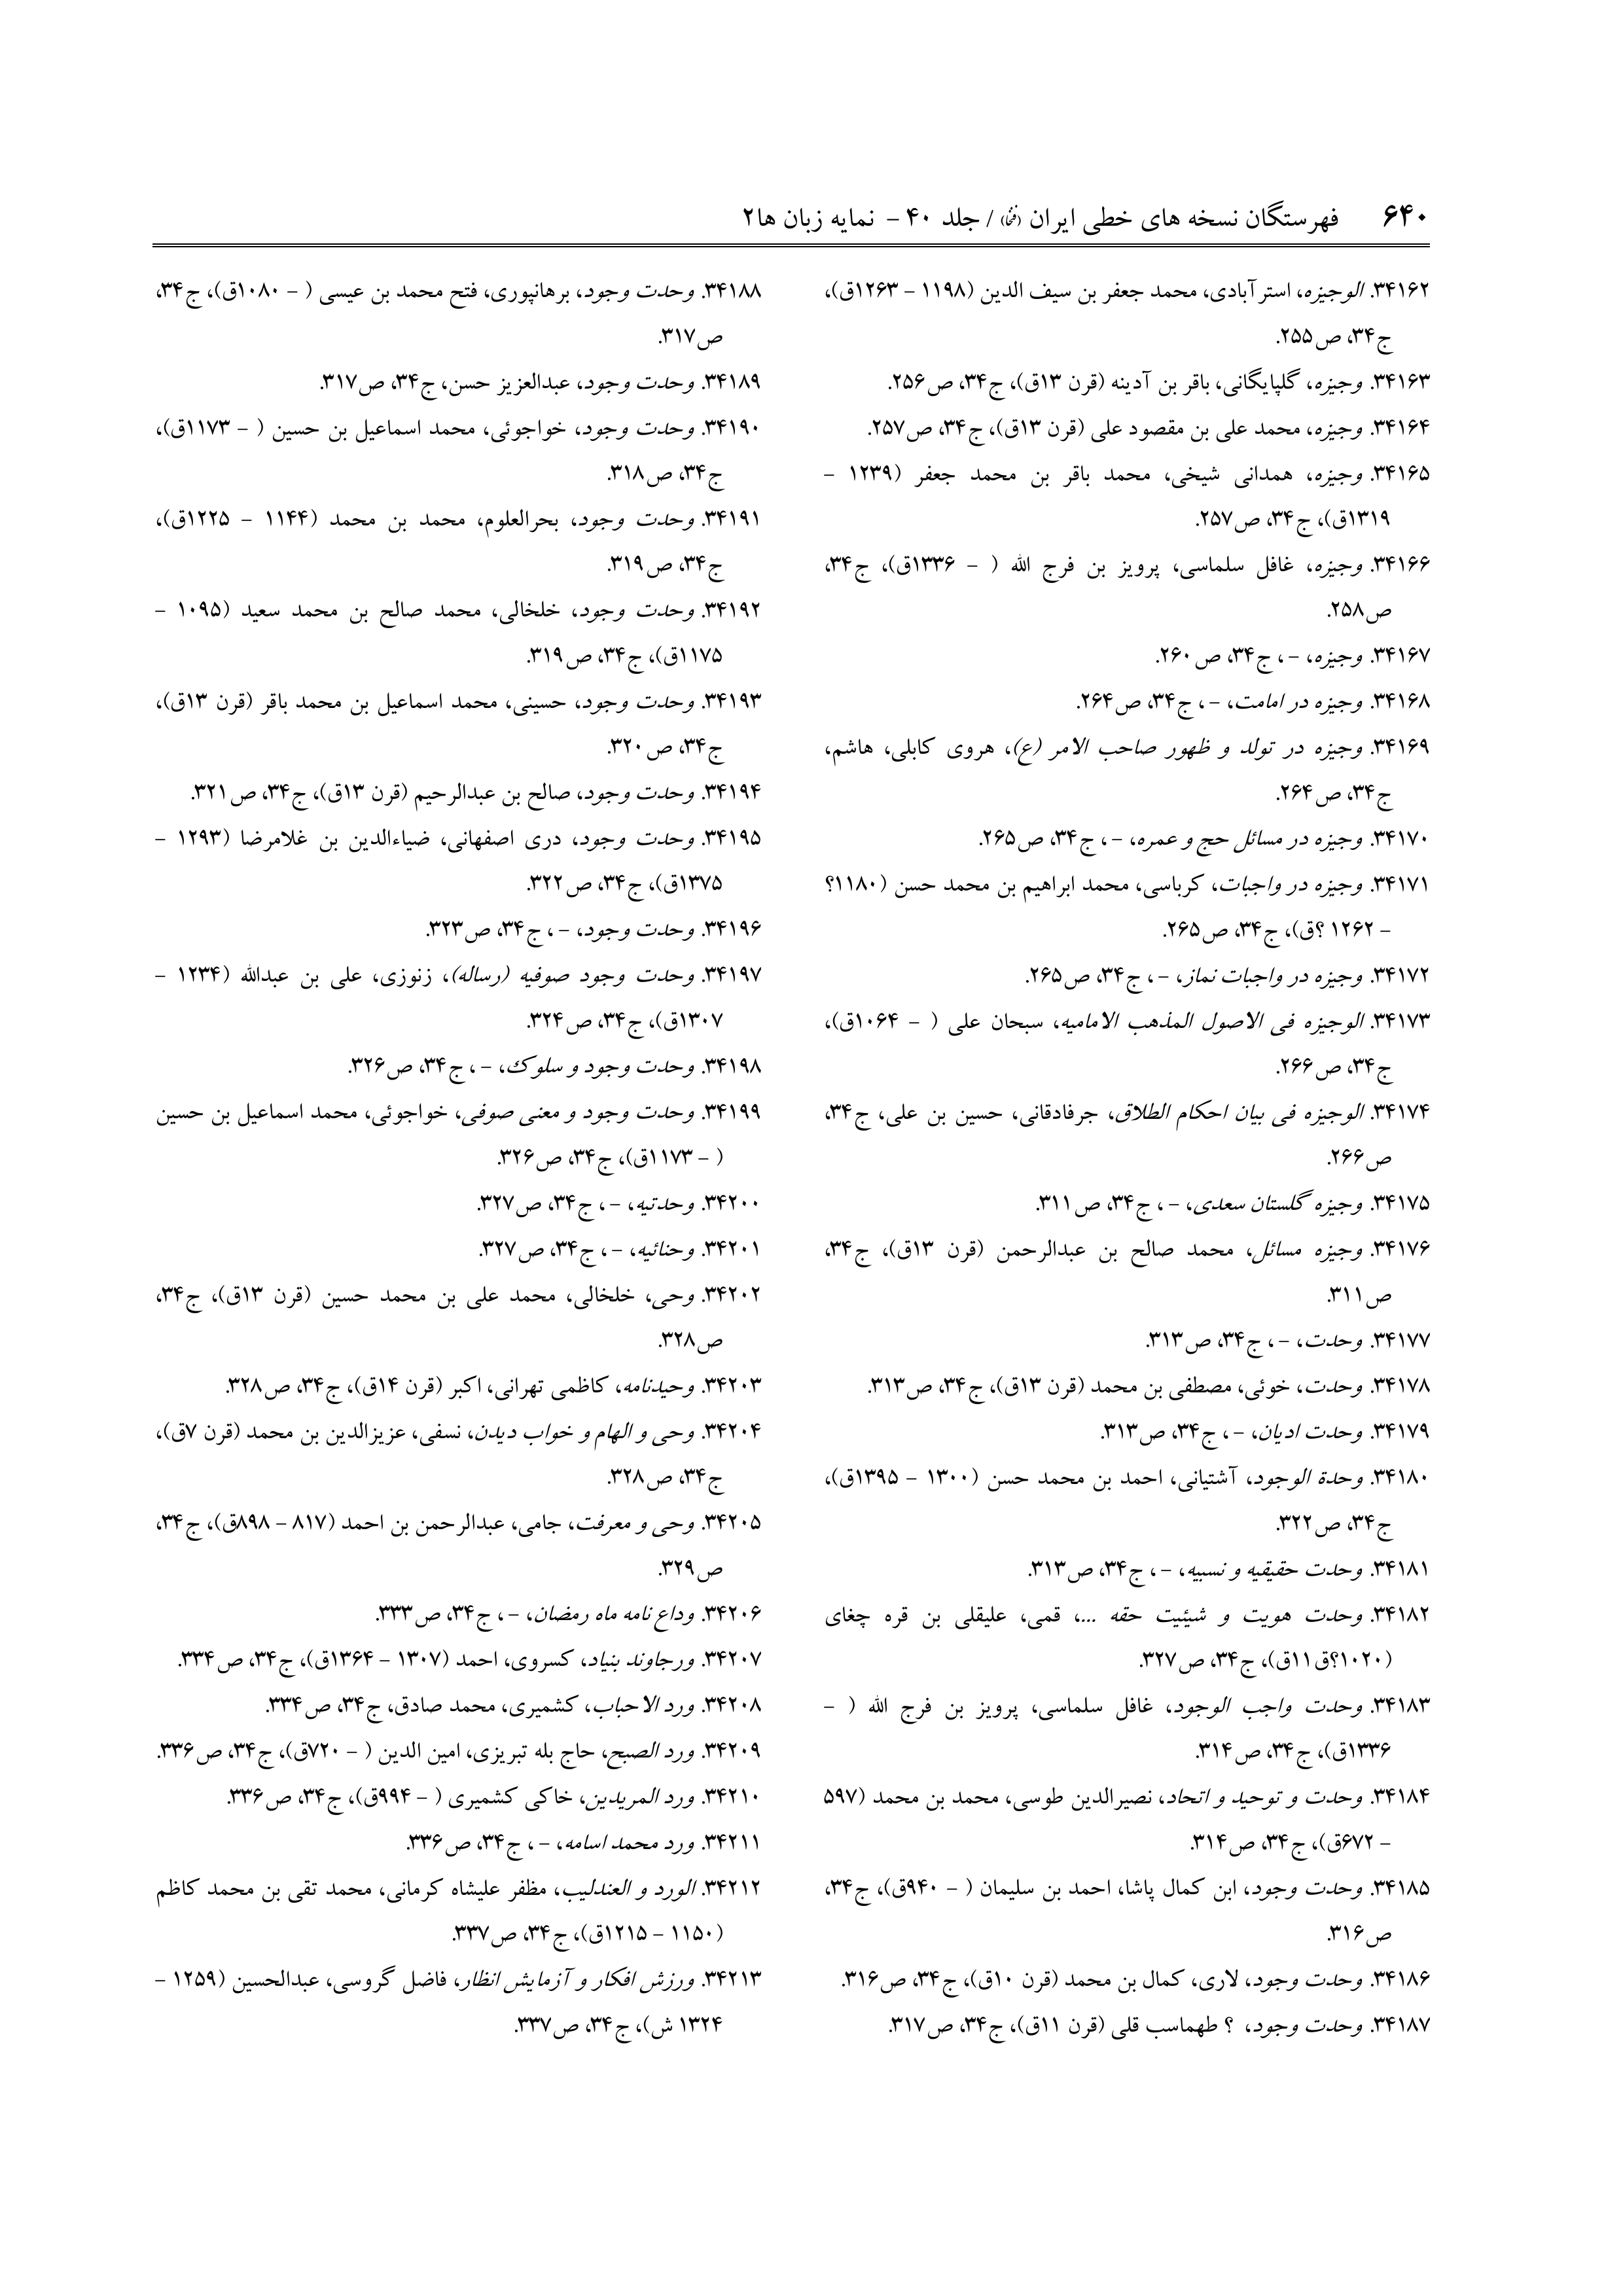 ۶۴۰ فهرستگان نسخه های خطی ایران (فنخا) / جلد ۴۰ – نمایه زبان ها۲
۳۴۱۶۲. الوجیزه، استرآبادی، محمد جعفر بن سیف الدین (۱۱۹۸ – ۱۲۶۳ق)،
ج۳۴، ص۲۵۵.
۳۴۱۶۳. وجیزه، گلپایگانی، باقر بن آدینه (قرن ۱۳ق)، ج۳۴، ص۲۵۶.
۳۴۱۶۴. وجیزه، محمد علی بن مقصود علی (قرن ۱۳ق)، ج۳۴، ص۲۵۷.
۳۴۱۶۵. وجیزه، همدانی شیخی، محمد باقر بن محمد جعفر (۱۲۳۹ –
۱۳۱۹ق)، ج۳۴، ص۲۵۷.
۳۴۱۶۶. وجیزه، غافل سلماسی، پرویز بن فرج الله ( – ۱۳۳۶ق)، ج۳۴،
ص۲۵۸.
۳۴۱۶۷. وجیزه، –، ج۳۴، ص۲۶۰.
۳۴۱۶۸. وجیزه در امامت، –، ج۳۴، ص۲۶۴.
۳۴۱۶۹. وجیزه در تولد و ظهور صاحب الامر (ع)، هروی کابلی، هاشم،
ج۳۴، ص۲۶۴.
۳۴۱۷۰. وجیزه در مسائل حج و عمره، –، ج۳۴، ص۲۶۵.
۳۴۱۷۱. وجیزه در واجبات، کرباسی، محمد ابراهیم بن محمد حسن (۱۱۸۰؟
– ۱۲۶۲ ؟ق)، ج۳۴، ص۲۶۵.
۳۴۱۷۲. وجیزه در واجبات نماز، –، ج۳۴، ص۲۶۵.
۳۴۱۷۳. الوجیزه فی الاصول المذهب الامامیه، سبحان علی ( – ۱۰۶۴ق)،
ج۳۴، ص۲۶۶.
۳۴۱۷۴. الوجیزه فی بیان احکام الطلاق، جرفادقانی، حسین بن علی، ج۳۴،
ص۲۶۶.
۳۴۱۷۵. وجیزه گلستان سعدی، –، ج۳۴، ص۳۱۱.
۳۴۱۷۶. وجیزه مسائل، محمد صالح بن عبدالرحمن (قرن ۱۳ق)، ج۳۴،
ص۳۱۱.
۳۴۱۷۷. وحدت، –، ج۳۴، ص۳۱۳.
۳۴۱۷۸. وحدت، خوئی، مصطفی بن محمد (قرن ۱۳ق)، ج۳۴، ص۳۱۳.
۳۴۱۷۹. وحدت ادیان، –، ج۳۴، ص۳۱۳.
۳۴۱۸۰. وحدة الوجود، آشتیانی، احمد بن محمد حسن (۱۳۰۰ – ۱۳۹۵ق)،
ج۳۴، ص۳۲۲.
۳۴۱۸۱. وحدت حقیقیه و نسبیه، –، ج۳۴، ص۳۱۳.
۳۴۱۸۲. وحدت هویت و شیئیت حقه ...، قمی، علیقلی بن قره چغای
(۱۰۲۰؟ق۱۱ق)، ج۳۴، ص۳۲۷.
۳۴۱۸۳. وحدت واجب الوجود، غافل سلماسی، پرویز بن فرج الله ( –
۱۳۳۶ق)، ج۳۴، ص۳۱۴.
۳۴۱۸۴. وحدت و توحید و اتحاد، نصیرالدین طوسی، محمد بن محمد (۵۹۷
– ۶۷۲ق)، ج۳۴، ص۳۱۴.
۳۴۱۸۵. وحدت وجود، ابن کمال پاشا، احمد بن سلیمان ( – ۹۴۰ق)، ج۳۴،
ص۳۱۶.
۳۴۱۸۶. وحدت وجود، لاری، کمال بن محمد (قرن ۱۰ق)، ج۳۴، ص۳۱۶.
۳۴۱۸۷. وحدت وجود، ؟ طهماسب قلی (قرن ۱۱ق)، ج۳۴، ص۳۱۷.
۳۴۱۸۸. وحدت وجود، برهانپوری، فتح محمد بن عیسی ( – ۱۰۸۰ق)، ج۳۴،
ص۳۱۷.
۳۴۱۸۹. وحدت وجود، عبدالعزیز حسن، ج۳۴، ص۳۱۷.
۳۴۱۹۰. وحدت وجود، خواجوئی، محمد اسماعیل بن حسین ( – ۱۱۷۳ق)،
ج۳۴، ص۳۱۸.
۳۴۱۹۱. وحدت وجود، بحرالعلوم، محمد بن محمد (۱۱۴۴ – ۱۲۲۵ق)،
ج۳۴، ص۳۱۹.
۳۴۱۹۲. وحدت وجود، خلخالی، محمد صالح بن محمد سعید (۱۰۹۵ –
۱۱۷۵ق)، ج۳۴، ص۳۱۹.
۳۴۱۹۳. وحدت وجود، حسینی، محمد اسماعیل بن محمد باقر (قرن ۱۳ق)،
ج۳۴، ص۳۲۰.
۳۴۱۹۴. وحدت وجود، صالح بن عبدالرحیم (قرن ۱۳ق)، ج۳۴، ص۳۲۱.
۳۴۱۹۵. وحدت وجود، دری اصفهانی، ضیاءالدین بن غلامرضا (۱۲۹۳ –
۱۳۷۵ق)، ج۳۴، ص۳۲۲.
۳۴۱۹۶. وحدت وجود، –، ج۳۴، ص۳۲۳.
۳۴۱۹۷. وحدت وجود صوفیه (رساله)، زنوزی، علی بن عبدالله (۱۲۳۴ –
۱۳۰۷ق)، ج۳۴، ص۳۲۴.
۳۴۱۹۸. وحدت وجود و سلوک، –، ج۳۴، ص۳۲۶.
۳۴۱۹۹. وحدت وجود و معنی صوفی، خواجوئی، محمد اسماعیل بن حسین
( – ۱۱۷۳ق)، ج۳۴، ص۳۲۶.
۳۴۲۰۰. وحدتیه، –، ج۳۴، ص۳۲۷.
۳۴۲۰۱. وحنائیه، –، ج۳۴، ص۳۲۷.
۳۴۲۰۲. وحی، خلخالی، محمد علی بن محمد حسین (قرن ۱۳ق)، ج۳۴،
ص۳۲۸.
۳۴۲۰۳. وحیدنامه، کاظمی تهرانی، اکبر (قرن ۱۴ق)، ج۳۴، ص۳۲۸.
۳۴۲۰۴. وحی و الهام و خواب دیدن، نسفی، عزیزالدین بن محمد (قرن ۷ق)،
ج۳۴، ص۳۲۸.
۳۴۲۰۵. وحی و معرفت، جامی، عبدالرحمن بن احمد (۸۱۷ – ۸۹۸ق)، ج۳۴،
ص۳۲۹.
۳۴۲۰۶. وداع نامه ماه رمضان، –، ج۳۴، ص۳۳۳.
۳۴۲۰۷. ورجاوند بنیاد، کسروی، احمد (۱۳۰۷ – ۱۳۶۴ق)، ج۳۴، ص۳۳۴.
۳۴۲۰۸. ورد الاحباب، کشمیری، محمد صادق، ج۳۴، ص۳۳۴.
۳۴۲۰۹. ورد الصبح، حاج بله تبریزی، امین الدین ( – ۷۲۰ق)، ج۳۴، ص۳۳۶.
۳۴۲۱۰. ورد المریدین، خاکی کشمیری ( – ۹۹۴ق)، ج۳۴، ص۳۳۶.
۳۴۲۱۱. ورد محمد اسامه، –، ج۳۴، ص۳۳۶.
۳۴۲۱۲. الورد و العندلیب، مظفر علیشاه کرمانی، محمد تقی بن محمد کاظم
(۱۱۵۰ – ۱۲۱۵ق)، ج۳۴، ص۳۳۷.
۳۴۲۱۳. ورزش افکار و آزمایش انظار، فاضل گروسی، عبدالحسین (۱۲۵۹ –
۱۳۲۴ ش)، ج۳۴، ص۳۳۷.